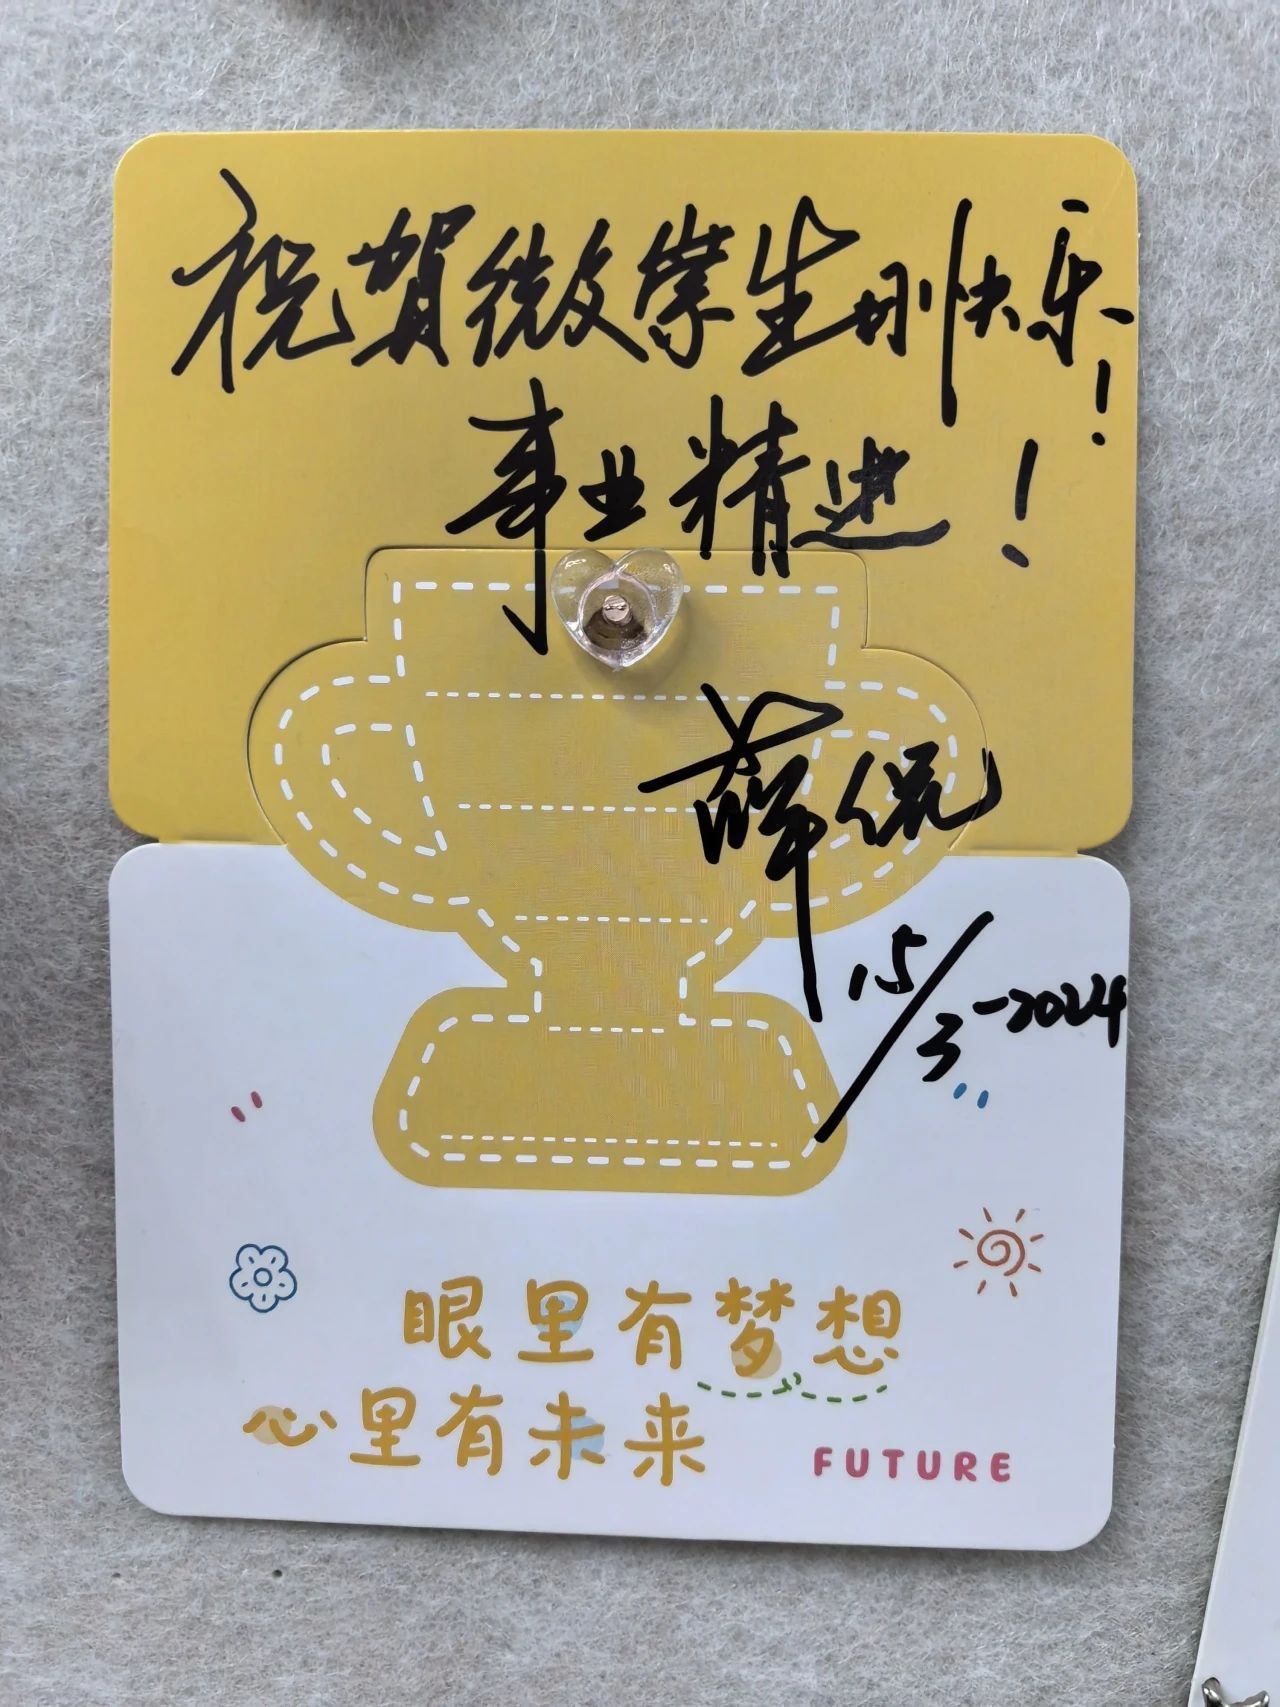 祝贺微生快乐!
事业精进!
薛侃
15/3-2024
眼里有梦想
心里有未来
FUTURE